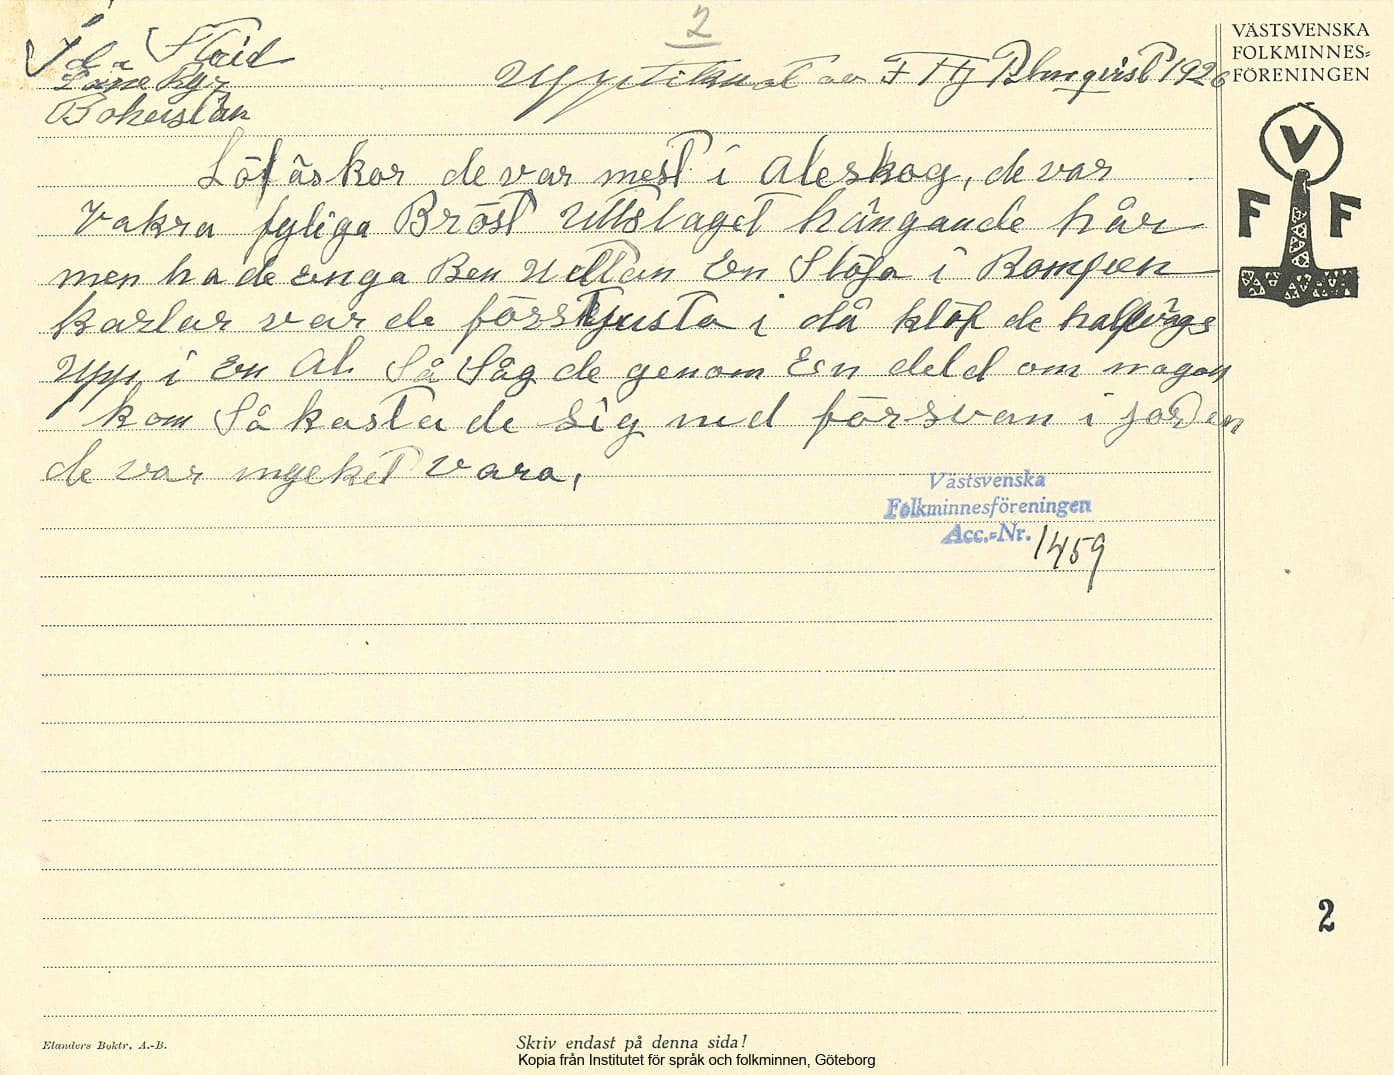 2
Ida Flaid
Lane Ryr
Bohuslän
Upptiknat av F Hj Blmqvist 1926
Löfäskor de var mest i Aleskog, de var
Vakra fyliga Bröst Uttslaget hängande hår
men hade enga Ben Uttan En Slöja i Rompen
karlar var de försktjusta i då klöf de halfvägs
Upp i En Al Så Såg de genom Een deld om nagon
kom Så kasta de Sig ned försvan i jorden
de var mycket vara,
Västsvenska
Folkminnesföreningen
Acc.-Nr. 1459
VÄSTSVENSKA
FOLKMINNES-
FÖRENINGEN
V
F F
2
Elanders Boktr. A.-B.
Skriv endast på denna sida!
Kopia från Institutet för språk och folkminnen, Göteborg